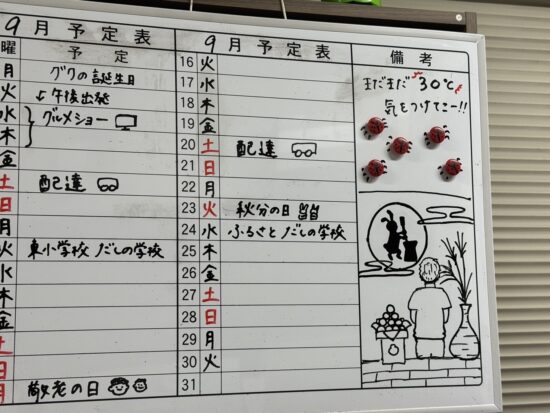 9月予定表
曜 予定
月 グクの誕生日
火 ↓午後出発
水 グルメショー
木
金
土 配達
日
月
火 東小学校 だしの学校
水
木
金
土
日
月 敬老の日
9月予定表
16 火
17 水
18 木
19 金
20 土 配達
21 日
22 月
23 火 秋分の日
24 水 ふるさと だしの学校
25 木
26 金
27 土
28 日
29 月
30 火
31
備考
まだまだ 30℃
気をつけてこー!!